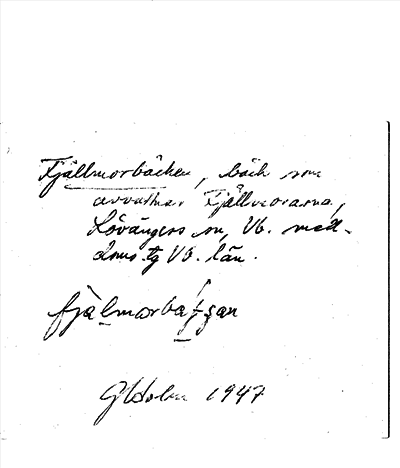 Fjällmorbäcken, bäck som
avvattnar Fjällmorarna,
Lövångers sn, Vb. med-
doms. tg Vb. län.
fjälmorba
GHolm 1947